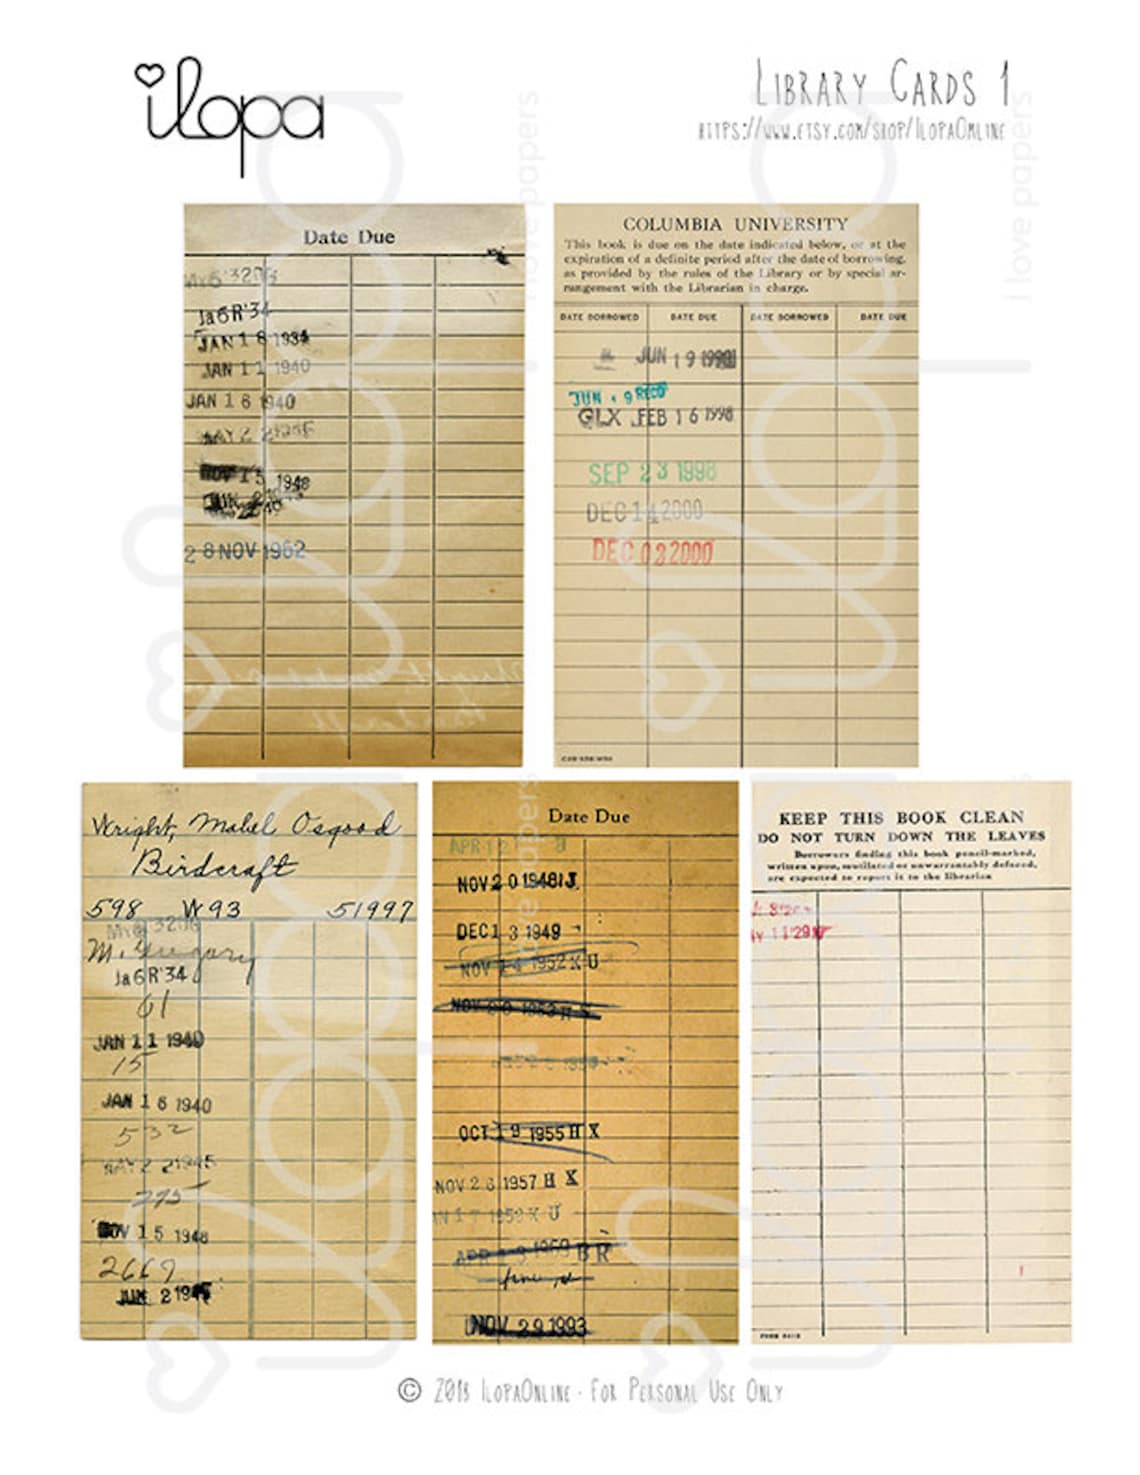 ilopa
Library Cards 1
https://www.etsy.com/shop/IlopaOnline
I love papers
I love papers
Date Due
Ja6R'34
JAN 18 1934
JAN 11 1940
JAN 16 1940
MAY 2 2
NOV 15 1948
28 NOV 1962
COLUMBIA UNIVERSITY
This book is due on the date indicated below, or at the
expiration of a definite period after the date of borrowing,
as provided by the rules of the Library or by special ar-
rangement with the Librarian in charge.
DATE BORROWED DATE DUE DATE BORROWED DATE DUE
JUN 19
JUN 9 REC'D
GLX FEB 16 1998
SEP 23 1998
DEC 14 2000
DEC 03 2000
Wright, Mabel Osgood
Birdcraft
598 W93 51997
M. Gregory
Ja6R'34
61
JAN 11 1940
15
JAN 16 1940
532
MAY 2 21945
275
NOV 15 1948
2669
JUN 2 194
Date Due
APR 12
NOV 20 1948 IJ
DEC 13 1949
NOV 14 1952 K U
NOV 20 1953 H
OCT 19 1955 H X
NOV 26 1957 H X
17 1959 K U
APR 1969 B R
fine pd
NOV 29 1993
KEEP THIS BOOK CLEAN
DO NOT TURN DOWN THE LEAVES
Borrowers finding this book pencil-marked,
written upon, mutilated or unwarrantably defaced,
are expected to report it to the librarian
11'29
I love papers
I love papers
© 2018 IlopaOnline · For Personal Use Only